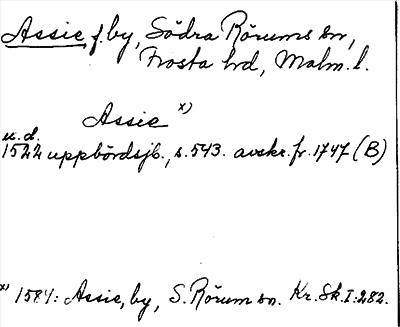 Assie f. by, Södra Rörums sn,
Frosta hd, Malm. l.
Assie x)
u. d.
1522 uppbördsjb., s. 543. avskr. fr. 1747 (B)
x) 1584: Assie, by, S. Rörum sn. Kr. Sk. I: 282.